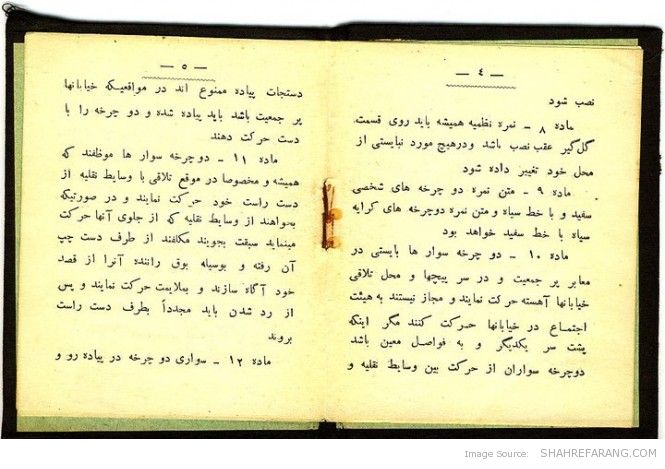 — ٤ —
نصب شود
ماده ۸ - نمره نظمیه همیشه باید روی قسمت
گل‌گیر عقب نصب باشد و درهیچ مورد نبایستی از
محل خود تغییر داده شود
ماده ۹ - متن نمره دو چرخه های شخصی
سفید و با خط سیاه و متن نمره دوچرخه های کرایه
سیاه با خط سفید خواهد بود
ماده ۱۰ - دو چرخه سوار ها بایستی در
معابر پر جمعیت و در سر پیچها و محل تلاقی
خیابانها آهسته حرکت نمایند و مجاز نیستند به هیئت
اجتماع در خیابانها حرکت کنند مگر اینکه
پشت سر یکدیگر و به فواصل معین باشد
دوچرخه سواران از حرکت بین وسایط نقلیه و
— ۵ —
دستجات پیاده ممنوع اند در مواقعیکه خیابانها
پر جمعیت باشد باید پیاده شده و دو چرخه را با
دست حرکت دهند
ماده ۱۱ - دوچرخه سوار ها موظفند که
همیشه و مخصوصا در موقع تلاقی با وسایط نقلیه از
دست راست خود حرکت نمایند و در صورتیکه
بخواهند از وسایط نقلیه که از جلوی آنها حرکت
مینماید سبقت بجویند مکلفند از طرف دست چپ
آن رفته و بوسیله بوق راننده آنرا از قصد
خود آگاه سازند و بملایمت حرکت نمایند و پس
از رد شدن باید مجدداً بطرف دست راست
بروند
ماده ۱۲ - سواری دو چرخه در پیاده رو و
Image Source: SHAHREFARANG.COM